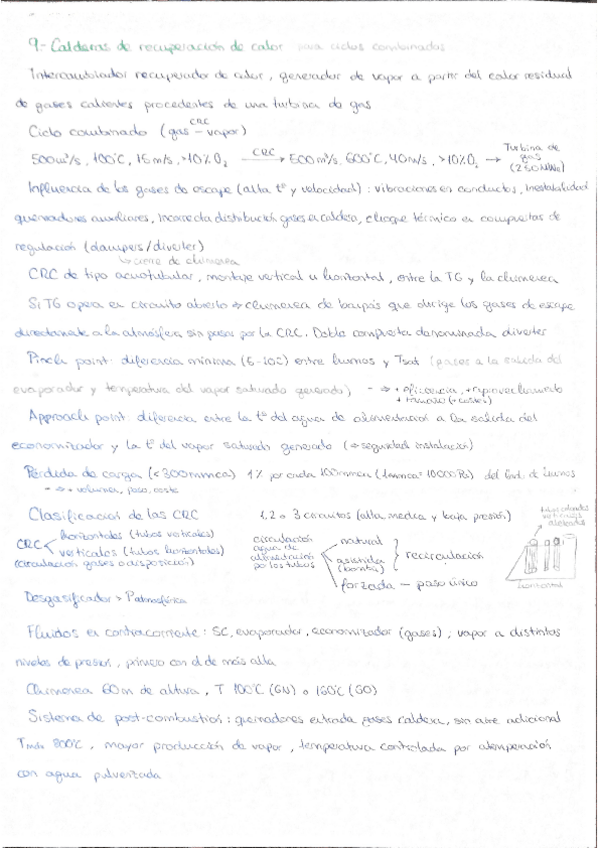 9.- Calderas de recuperación de calor para ciclos combinados
Intercambiador recuperador de calor, generador de vapor a partir del calor residual
de gases calientes procedentes de una turbina de gas
Ciclo combinado (gas - vapor)
CRC
500 m³/s, 100°C, 15 m/s, >10% O₂ CRC → 500 m³/s, 600°C, 40 m/s, >10% O₂ → Turbina de
gas
(250MWe)
Influencia de los gases de escape (alta tª y velocidad): vibraciones en conductos, inestabilidad
quemadores auxiliares, incorrecta distribución gases en caldera, choque térmico en compuertas de
regulación (dampers/diverter)
↳ cierre de chimenea
CRC de tipo acuotubular, montaje vertical u horizontal, entre la TG y la chimenea
Si TG opera en circuito abierto ⇒ chimenea de baipás que dirige los gases de escape
directamente a la atmósfera sin pasar por la CRC. Doble compuerta denominada diverter
Pinch point: diferencia mínima (5-10°C) entre humos y Tsat (gases a la salida del
evaporador y temperatura del vapor saturado generado) - ⇒ + eficiencia, + aprovechamiento
+ tamaño (+ costes)
Approach point: diferencia entre la tª del agua de alimentación a la salida del
economizador y la tª del vapor saturado generado (⇒ seguridad instalación)
Pérdida de carga (<300mmca) 1% por cada 100mmca (1mmca = 10000 Pa) del de humos
- ⇒ + volumen, peso, coste
Clasificación de las CRC 1, 2 o 3 circuitos (alta media y baja presión)
CRC horizontales (tubos verticales)
verticales (tubos horizontales)
(circulación gases o disposición)
circulación
agua de
alimentación
por los tubos
natural
asistida
(bomba)
} recirculación
forzada - paso único
tubos
verticales
horizontal
Desgasificador > Patmosférica
Fluidos en contracorriente: SC, evaporador, economizador (gases), vapor a distintos
niveles de presión, primero con el de más alta
Chimenea 60m de altura, T 100°C (GN) o 160°C (GO)
Sistema de post-combustión: quemadores entrada gases caldera, sin aire adicional
Tmáx 800°C, mayor producción de vapor, temperatura controlada por atemperación
con agua pulverizada